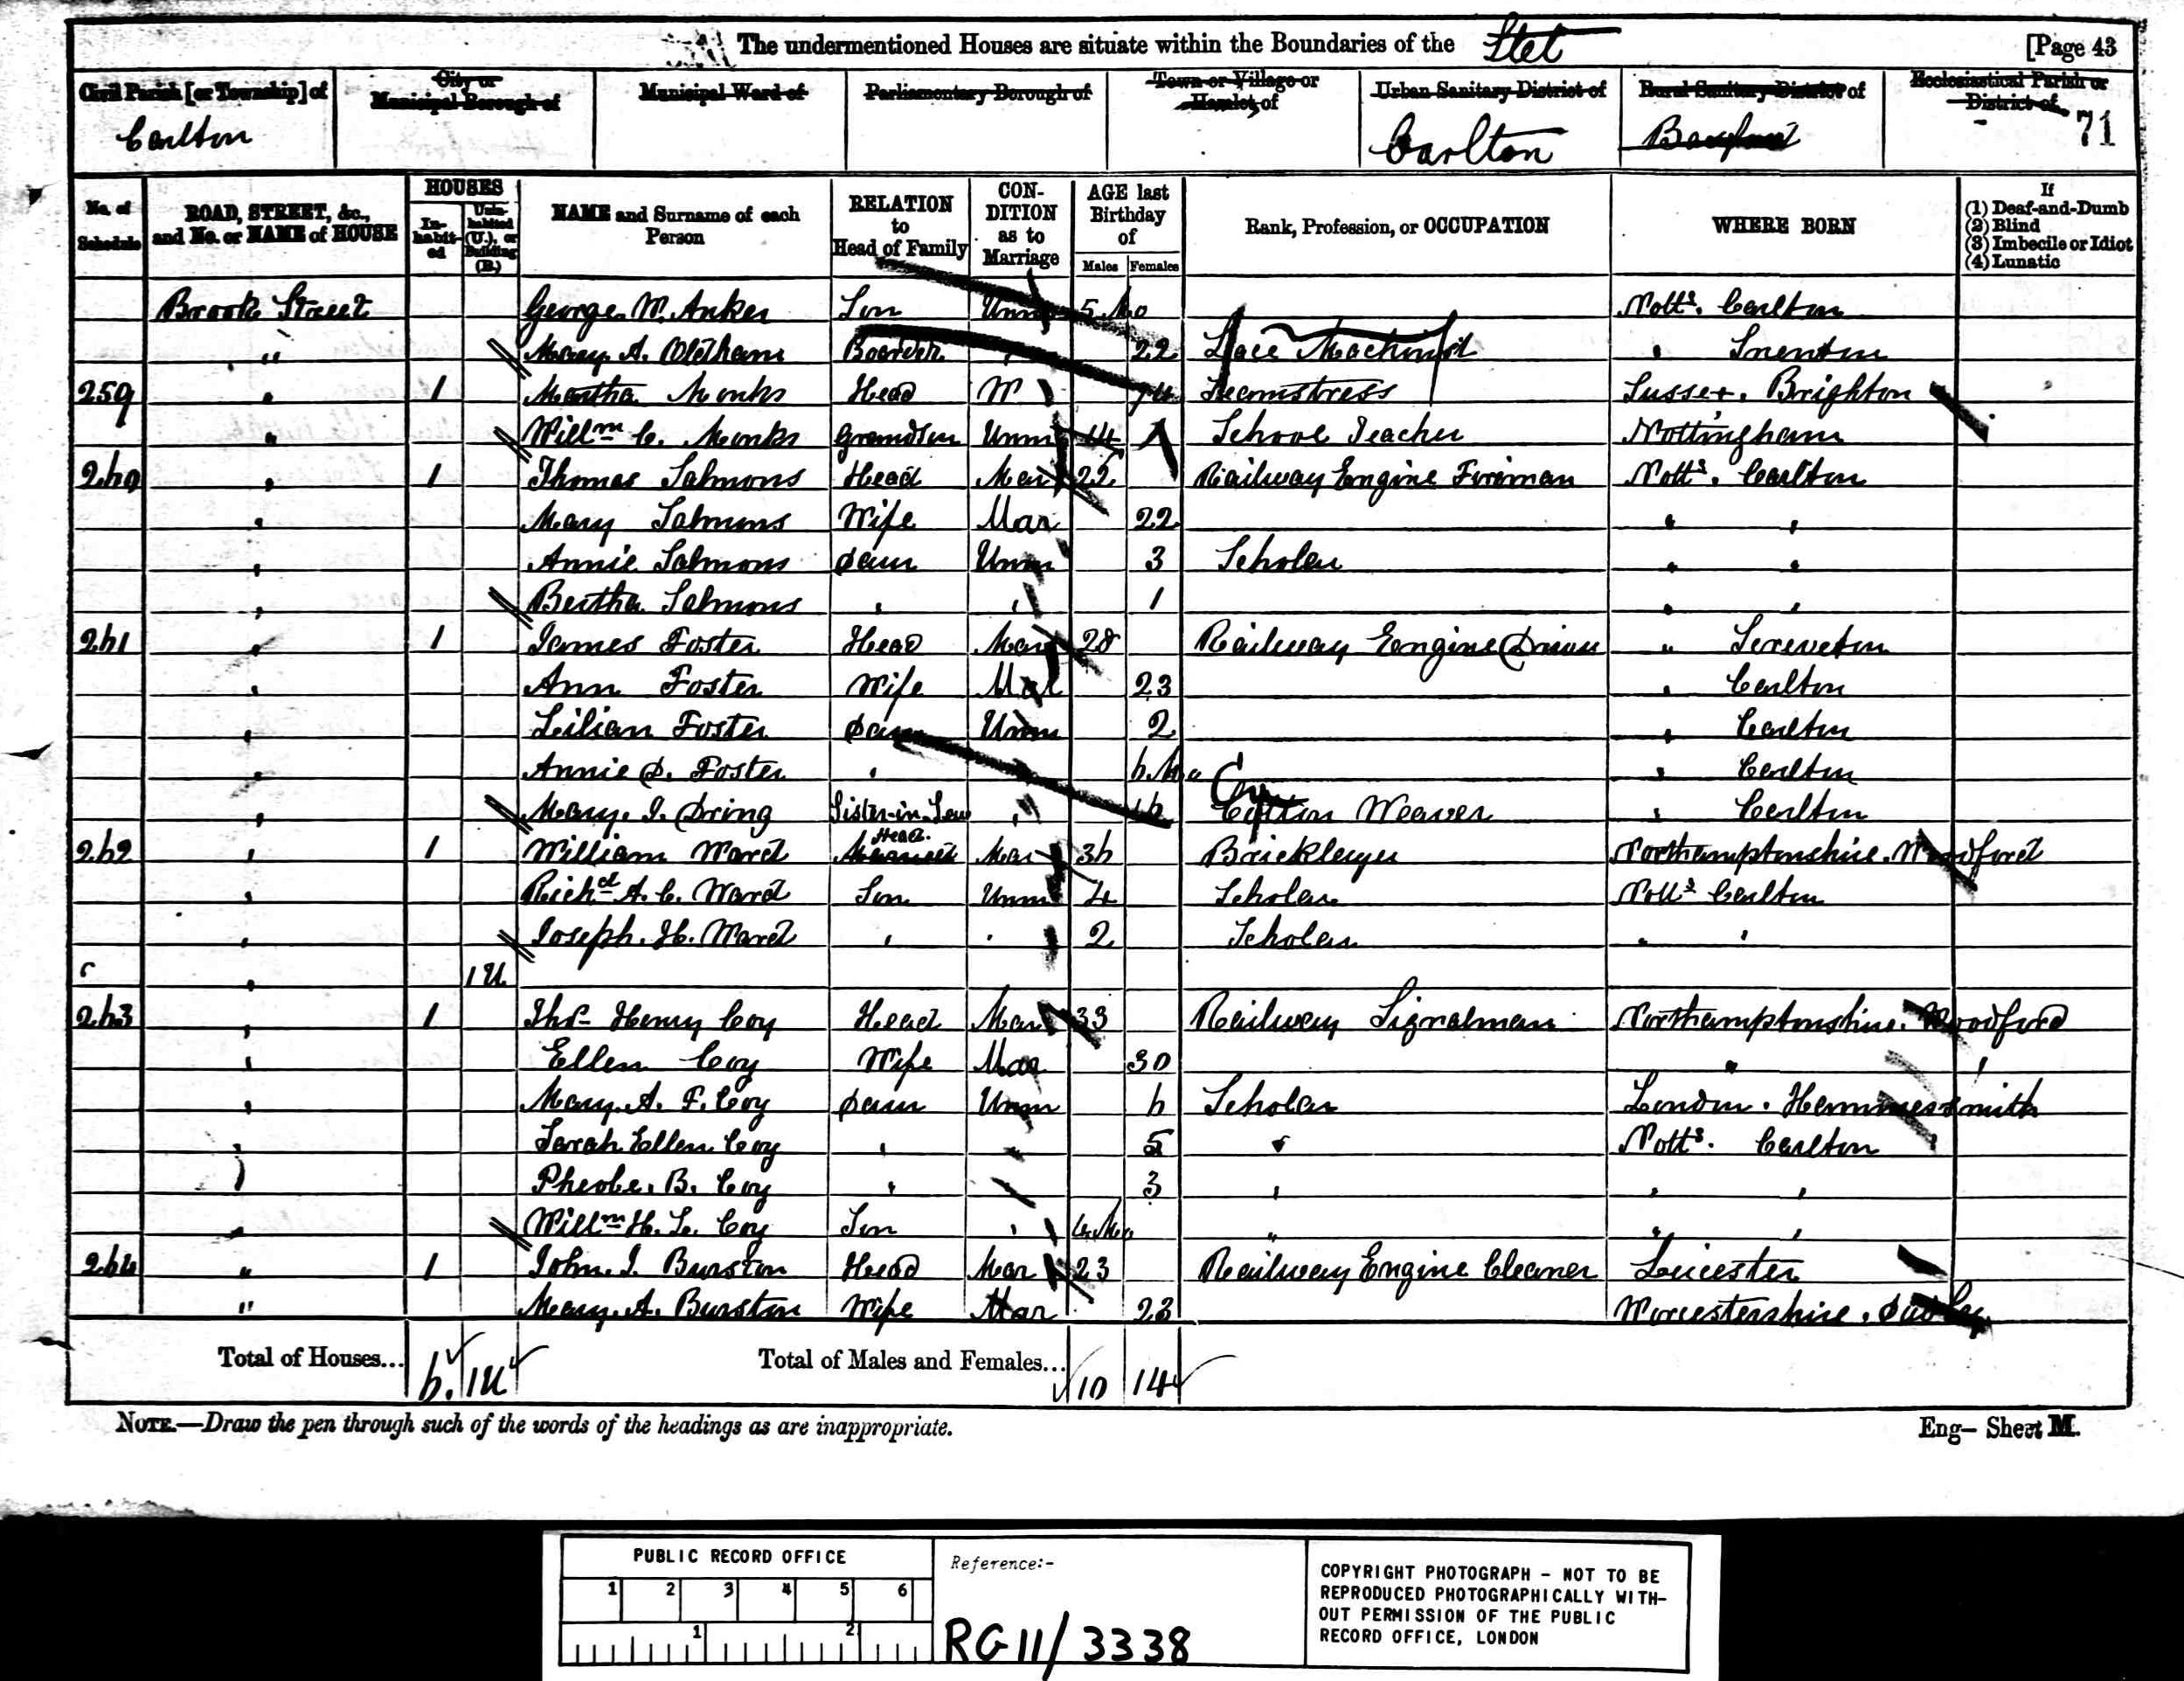 The undermentioned Houses are situate within the Boundaries of the Stet [Page 43
Civil Parish [or Township] of City or Municipal Borough of Municipal Ward of Parliamentary Borough of Town or Village or Hamlet of Urban Sanitary District of Rural Sanitary District of Ecclesiastical Parish or District of
Carlton Carlton 71
No. of Schedule ROAD, STREET, &c., and No. or NAME of HOUSE HOUSES Inhabited Uninhabited (U.), or Building (B.) NAME and Surname of each Person RELATION to Head of Family CONDITION as to Marriage AGE last Birthday of Males Females Rank, Profession, or OCCUPATION WHERE BORN If (1) Deaf-and-Dumb (2) Blind (3) Imbecile or Idiot (4) Lunatic
Brook Street George W. Anker Son Unm 5 Mo Notts. Carlton
" Mary A. Oldham Boarder " 22 Lace Machinist " Snenton
259 " 1 Martha Monks Head W 74 Seamstress Sussex. Brighton
" Willm C. Monks Grandson Unm 14 School Teacher Nottingham
260 " 1 Thomas Salmons Head Mar 22 Railway Engine Fireman Notts. Carlton
" Mary Salmons Wife Mar 22 " "
" Annie Salmons Daur Unm 3 Scholar " "
" Bertha Salmons " " 1 " "
261 " 1 James Foster Head Mar 28 Railway Engine Driver " Screveton
" Ann Foster Wife Mar 23 " Carlton
" Lilian Foster Daur Unm 2 " Carlton
" Annie D. Foster " 6 Mo " Carlton
" Mary. J. Dring Sister-in-Law " 16 Cotton Weaver " Carlton
262 " 1 William Ward Head. Mar 36 Bricklayer Northamptonshire. Woodford
" Richd A. C. Ward Son Unm 4 Scholar Notts Carlton
" Joseph. H. Ward " " 2 Scholar " "
" 1 U
263 " 1 Thos Henry Coy Head Mar 33 Railway Signalman Northamptonshire. Woodford
" Ellen Coy Wife Mar 30 " "
" Mary. A. F. Coy Daur Unm 6 Scholar London. Hammersmith
" Sarah Ellen Coy " " 5 " Notts. Carlton
" Pheobe. B. Coy " " 3 " " "
" Willm H. L. Coy Son " 4 Mo " " "
264 " 1 John. J. Burston Head Mar 23 Railway Engine Cleaner Leicester
" Mary. A. Burston Wife Mar 23 Worcestershire. Dudley
Total of Houses... 6. 1U Total of Males and Females... 10 14
NOTE.—Draw the pen through such of the words of the headings as are inappropriate. Eng— Sheet M.
PUBLIC RECORD OFFICE
1 2 3 4 5 6
1 2
Reference:-
RG 11/3338
COPYRIGHT PHOTOGRAPH - NOT TO BE
REPRODUCED PHOTOGRAPHICALLY WITH-
OUT PERMISSION OF THE PUBLIC
RECORD OFFICE, LONDON